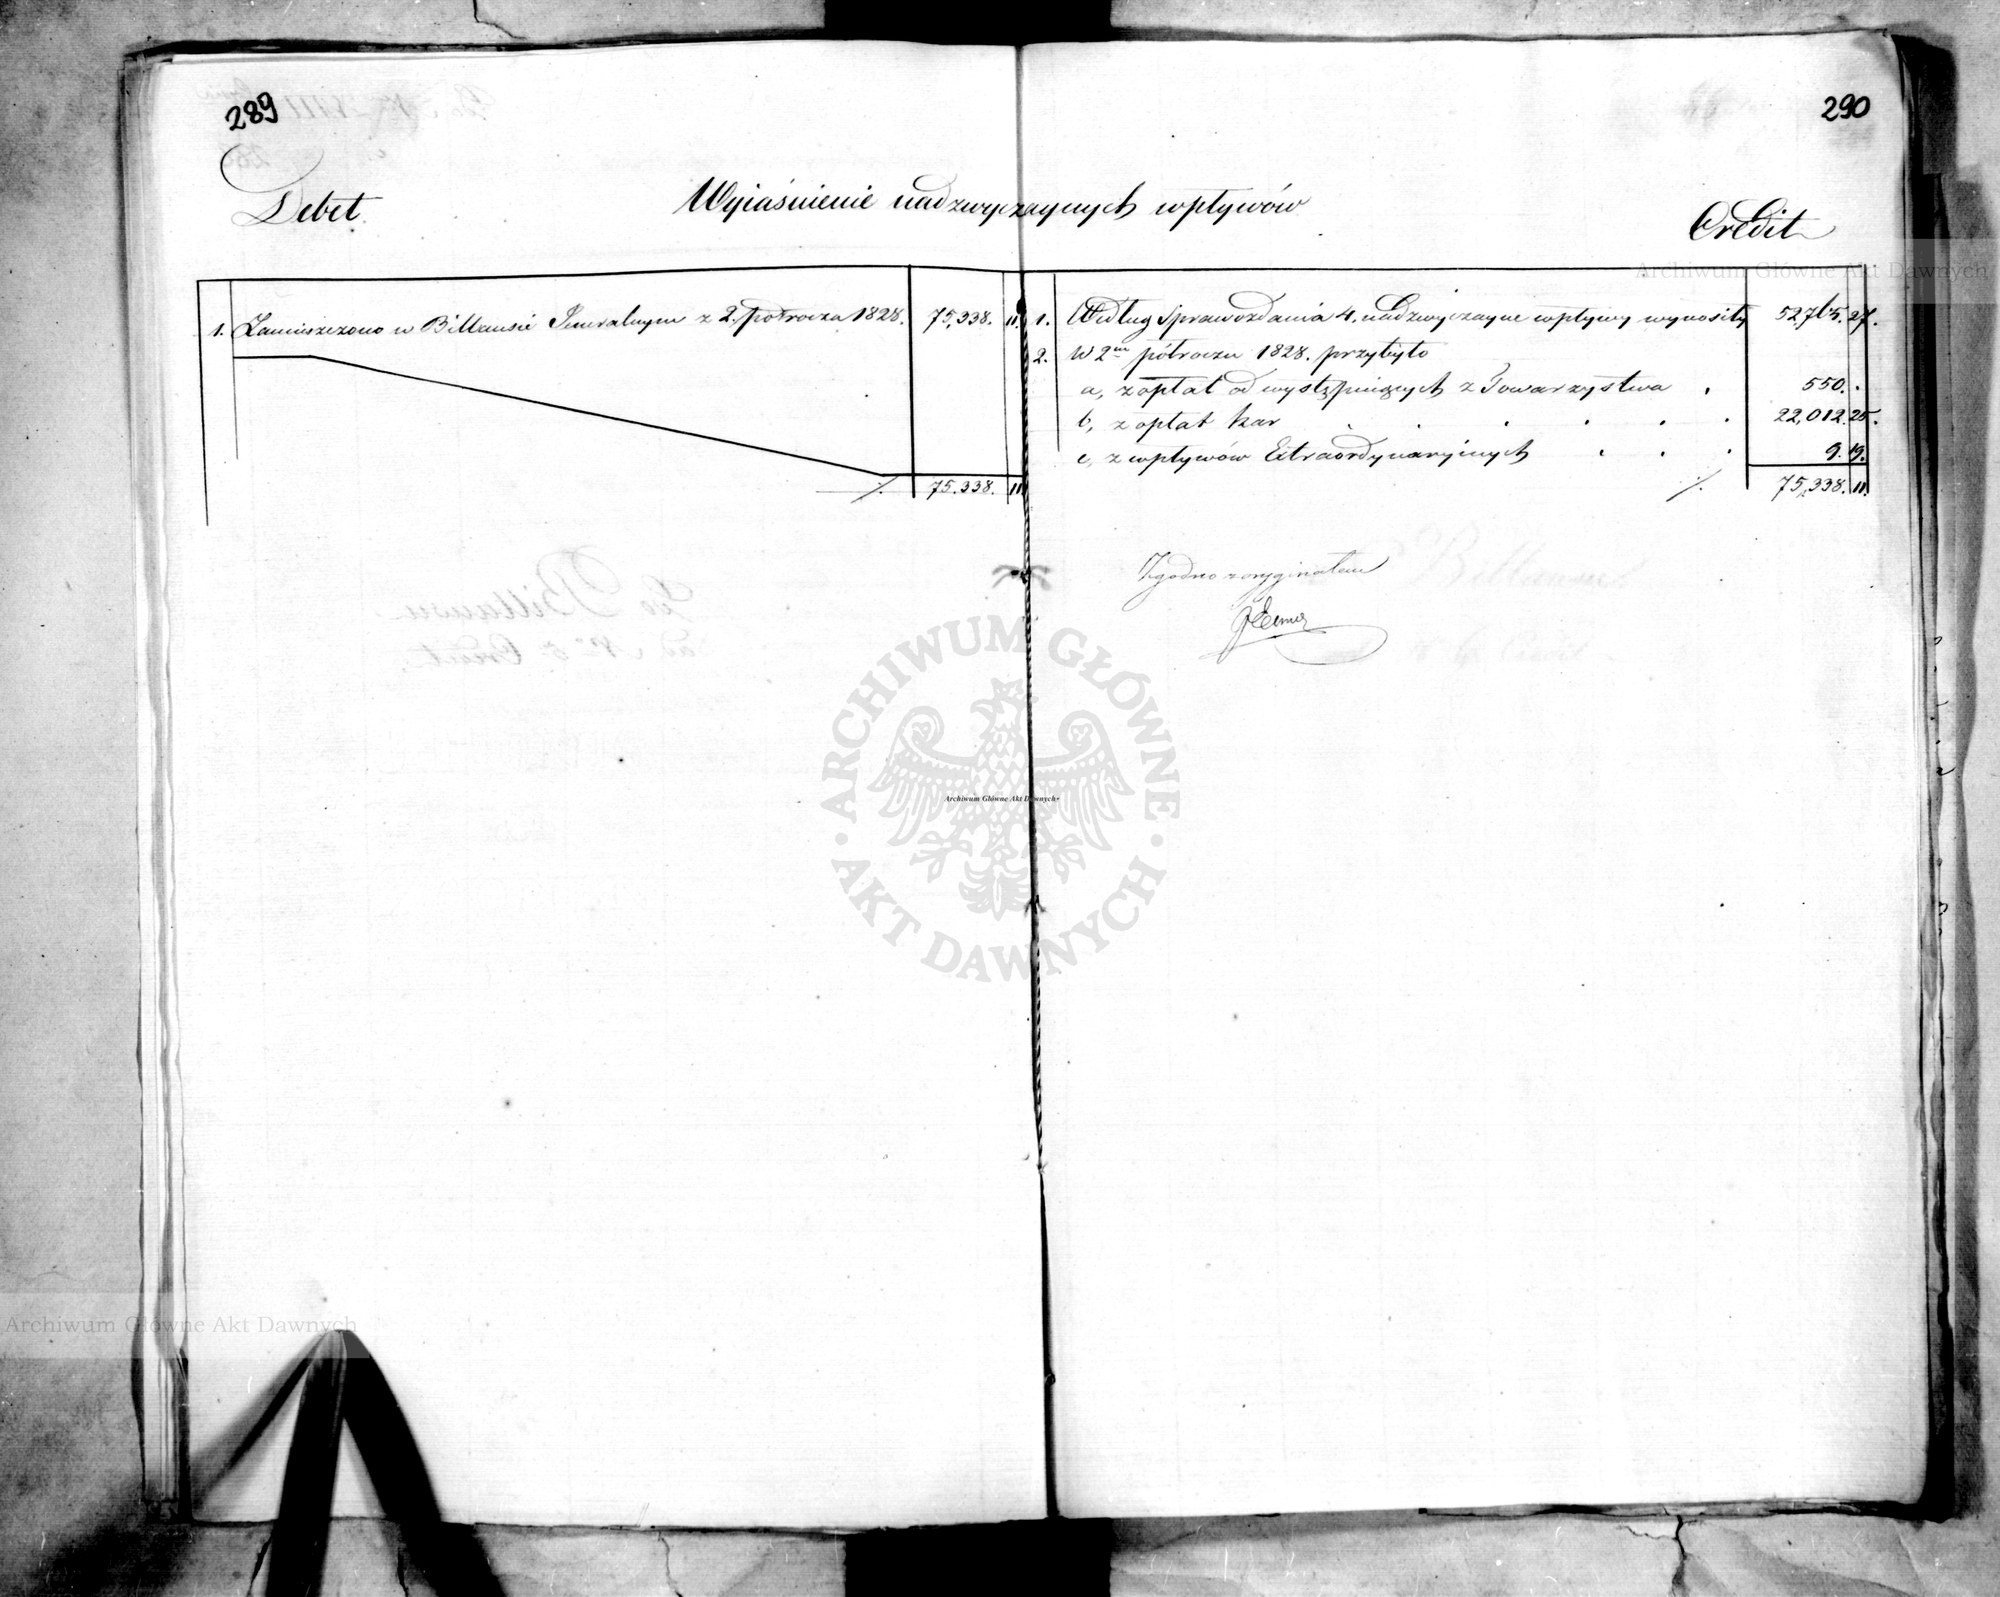 289
290
Debet.
Wyjaśnienie nadzwyczaynych wpływów
Credit
1. Zamieszczono w Billansie Generalnym z 2. półrocza 1828. 75,338. 11.
75.338. 11
1. Według Sprawozdania 4. nadzwyczayne wpływy wynosiły 52,765. 27.
2. W 2m półroczu 1828. przybyło
a, z opłat od występuiących z Towarzystwa . 550. .
b, z opłat kar . . . . . . 22,012. 25.
c, z wpływów Extraordynaryinych . . . 9. 19.
75,338. 11.
Zgodno z oryginałem
Archiwum Główne Akt Dawnych
ARCHIWUM GŁÓWNE AKT DAWNYCH
Archiwum Główne Akt Dawnych
Archiwum Główne Akt Dawnych